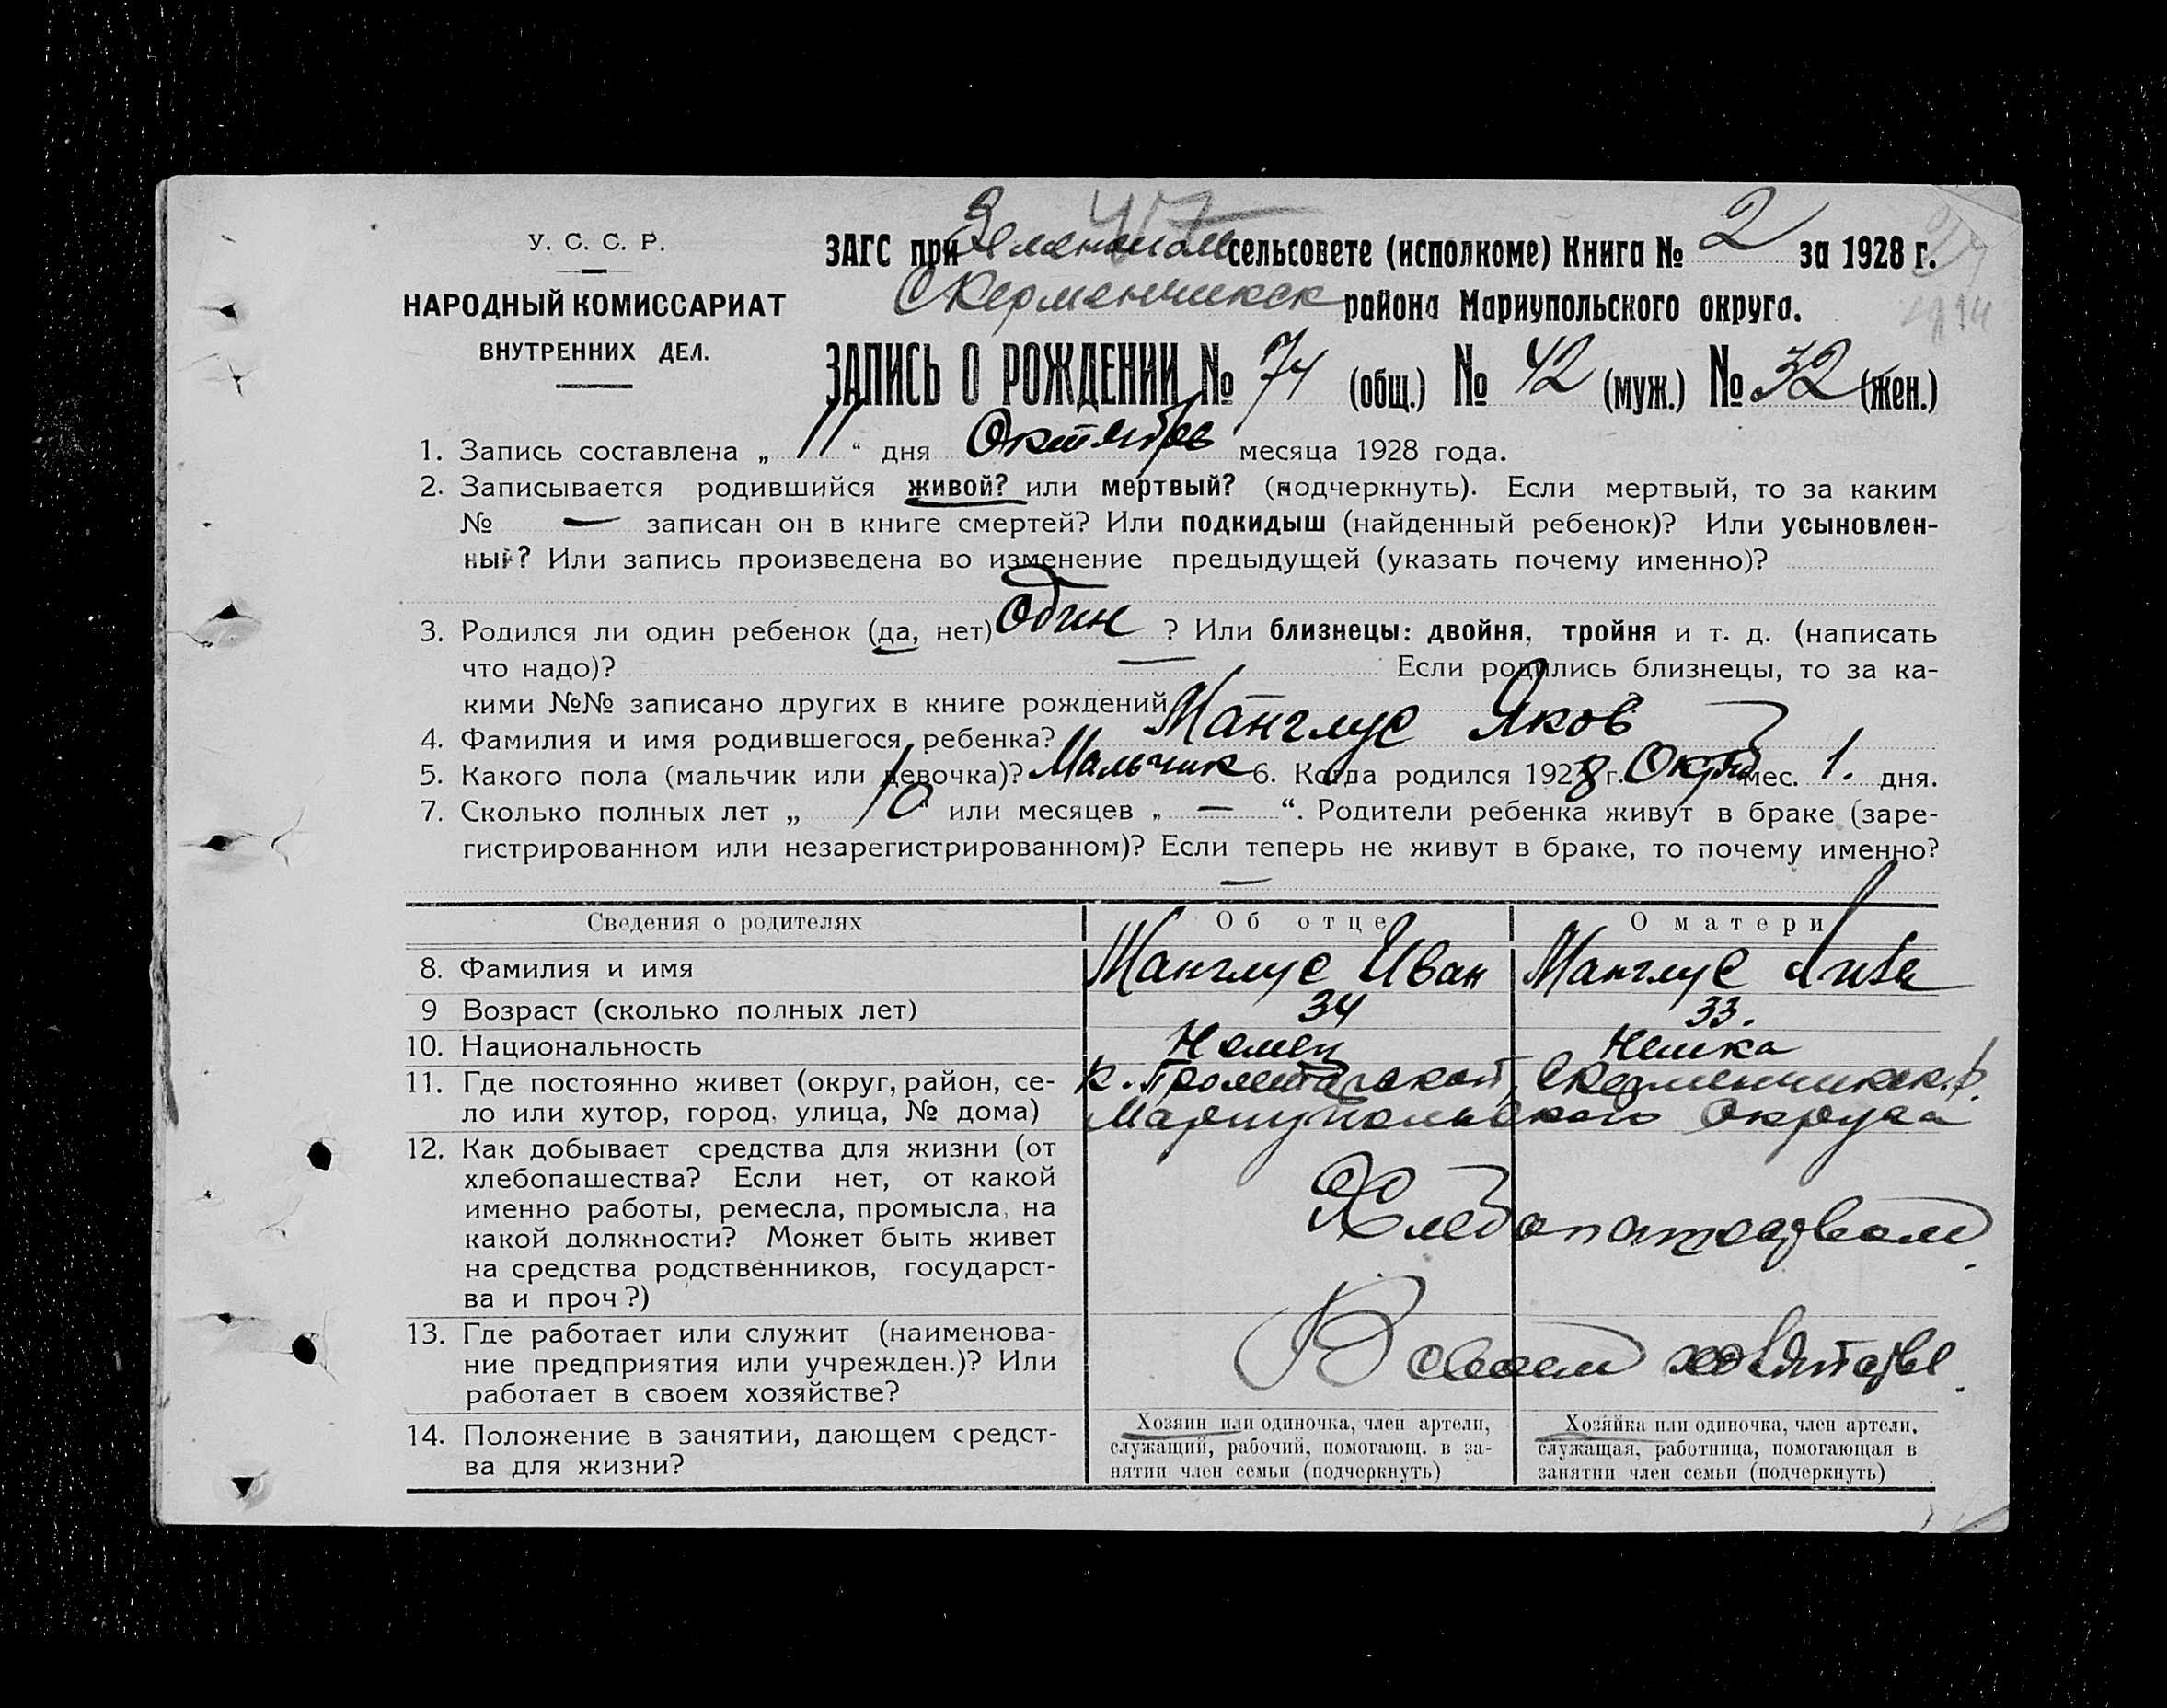 47
У. С. С. Р.
НАРОДНЫЙ КОМИССАРИАТ
ВНУТРЕННИХ ДЕЛ.
ЗАГС при сельсовете (исполкоме) Книга № 2 за 1928 г.
СКерменчикск района Мариупольского округа.
ЗАПИСЬ О РОЖДЕНИИ № 74 (общ.) № 42 (муж.) № 32 (жен.)
1. Запись составлена „ 11 “ дня Октября месяца 1928 года.
2. Записывается родившийся живой? или мертвый? (подчеркнуть). Если мертвый, то за каким
№ — записан он в книге смертей? Или подкидыш (найденный ребенок)? Или усыновлен-
ный? Или запись произведена во изменение предыдущей (указать почему именно)?
3. Родился ли один ребенок (да, нет) один ? Или близнецы: двойня, тройня и т. д. (написать
что надо)? — Если родились близнецы, то за ка-
кими №№ записано других в книге рождений
4. Фамилия и имя родившегося ребенка? Манглус Яков
5. Какого пола (мальчик или девочка)? Мальчик 6. Когда родился 1928 г. Октяб мес. 1. дня.
7. Сколько полных лет „ 10 “ или месяцев „ — “. Родители ребенка живут в браке (заре-
гистрированном или незарегистрированном)? Если теперь не живут в браке, то почему именно?
—
Сведения о родителях Об отце О матери
8. Фамилия и имя Манглус Иван Манглус Лиза
9 Возраст (сколько полных лет) 34 33.
10. Национальность Немец Немка
11. Где постоянно живет (округ, район, се-
ло или хутор, город, улица, № дома)
к. Пролетарской, СКерменчикск. р.
Мариупольского Округа
12. Как добывает средства для жизни (от
хлебопашества? Если нет, от какой
именно работы, ремесла, промысла, на
какой должности? Может быть живет
на средства родственников, государст-
ва и проч?)
Хлебопашеством
13. Где работает или служит (наименова-
ние предприятия или учрежден.)? Или
работает в своем хозяйстве?
В своем хозяйстве.
14. Положение в занятии, дающем средст-
ва для жизни?
Хозяин или одиночка, член артели,
служащий, рабочий, помогающ. в за-
нятии член семьи (подчеркнуть)
Хозяйка или одиночка, член артели,
служащая, работница, помогающая в
занятии член семьи (подчеркнуть)